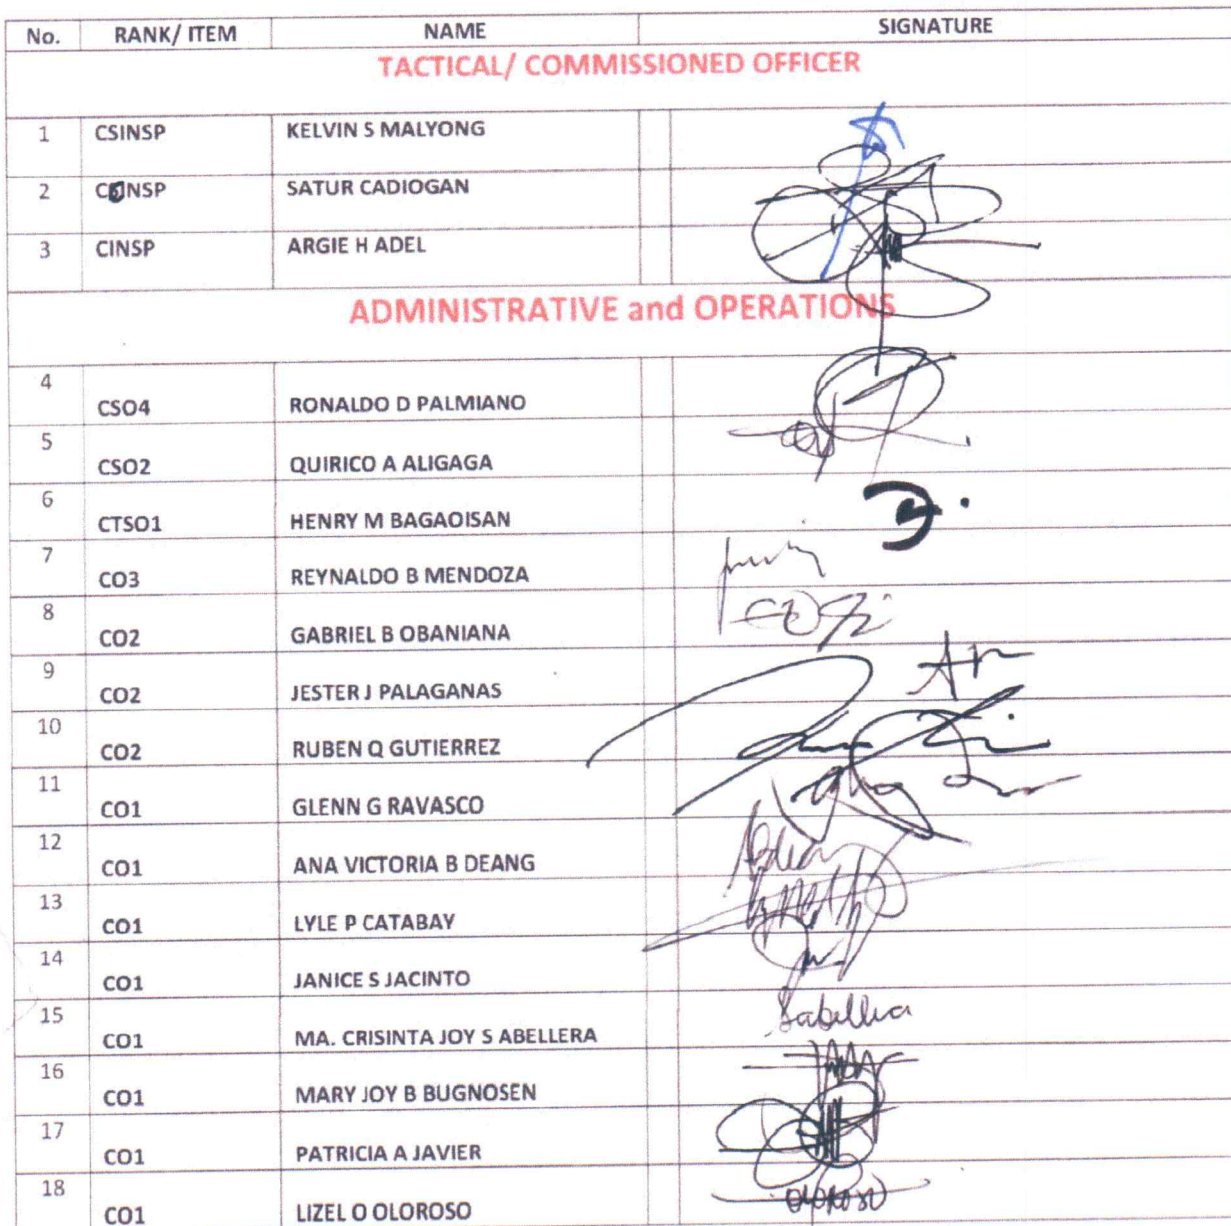 No. RANK/ ITEM NAME SIGNATURE
TACTICAL/ COMMISSIONED OFFICER
1 CSINSP KELVIN S MALYONG
2 SATUR CADIOGAN
3 CINSP ARGIE H ADEL
ADMINISTRATIVE and OPERATIONS
4 CSO4 RONALDO D PALMIANO
5 CSO2 QUIRICO A ALIGAGA
6 CTSO1 HENRY M BAGAOISAN
7 CO3 REYNALDO B MENDOZA
8 CO2 GABRIEL B OBANIANA
9 CO2 JESTER J PALAGANAS
10 CO2 RUBEN Q GUTIERREZ
11 CO1 GLENN G RAVASCO
12 CO1 ANA VICTORIA B DEANG
13 CO1 LYLE P CATABAY
14 CO1 JANICE S JACINTO
15 CO1 MA. CRISINTA JOY S ABELLERA Sabellera
16 CO1 MARY JOY B BUGNOSEN
17 CO1 PATRICIA A JAVIER
18 CO1 LIZEL O OLOROSO OLOROSO